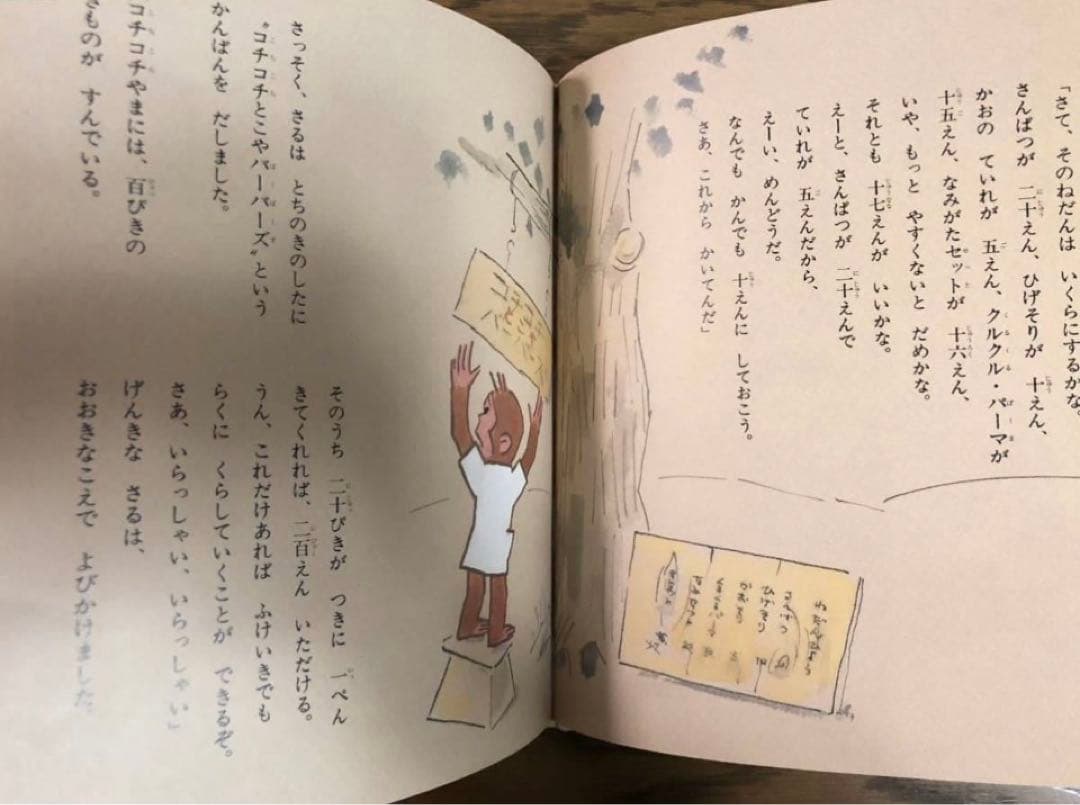 「さて、そのねだんは いくらにするかな。
さんぱつが 二十えん、ひげそりが 十えん、
かおの ていれが 五えん、クルクル・パーマが
十五えん、なみがたセットが 十六えん、
いや、もっと やすくないと だめかな。
それとも 十七えんが いいかな。
えーと、さんぱつが 二十えんで
ていれが 五えんだから、
えーい、めんどうだ。
なんでも かんでも 十えんに しておこう。
さあ、これから かいてんだ」
さっそく、さるは とちのきのしたに
“コチコチとこやバーバーズ”という
かんばんを だしました。
コチコチやまには、百ぴきの
ものが すんでいる。
そのうち 二十ぴきが つきに 一ぺん
きてくれれば、二百えん いただける。
うん、これだけあれば ふけいきでも
らくに くらしていくことが できるぞ。
さあ、いらっしゃい、いらっしゃい」
げんきな さるは、
おおきなこえで よびかけました。
コチコチ